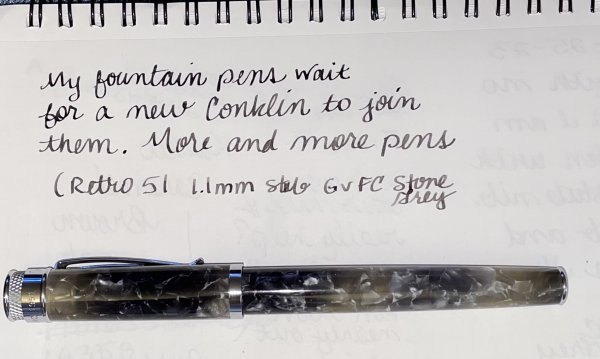 My fountain pens wait
for a new Conklin to join
them. More and more pens
(Retro 51 1.1mm stub GvFC Stone
Grey